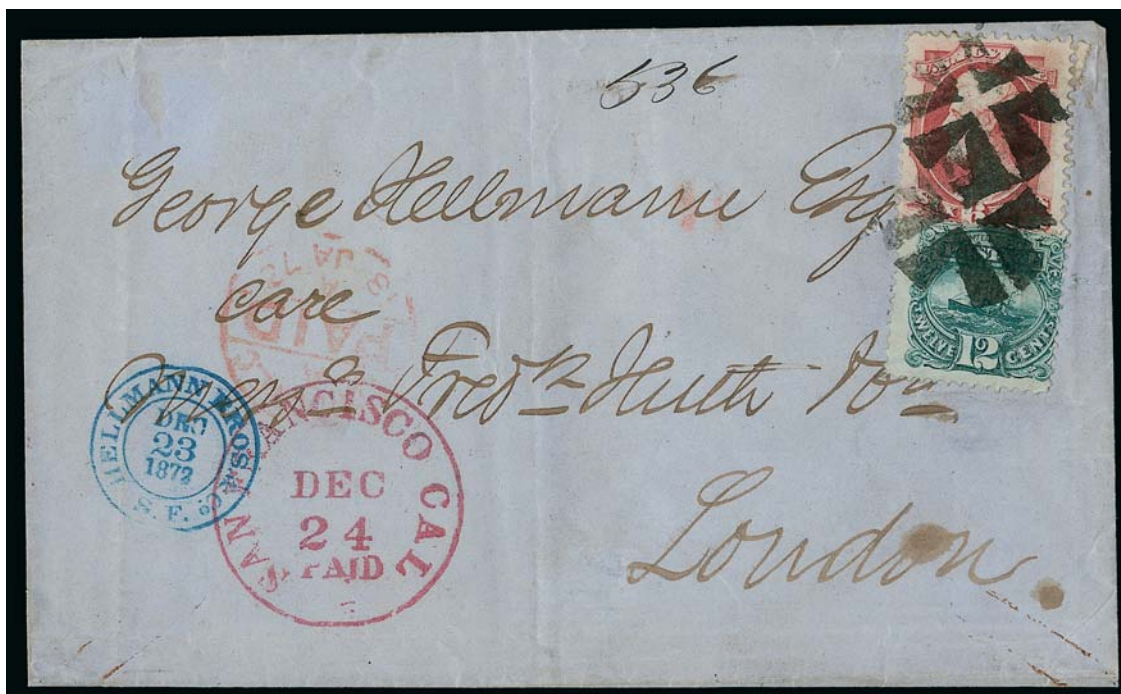 636
George Hellmann Esq
care
Mess Fredk Huth & Co
London
HELLMANN BROS & Co
DEC
23
1872
S. F.
SAN FRANCISCO CAL
DEC
24
PAID
PAID
JA 73
TWELVE 12 CENTS